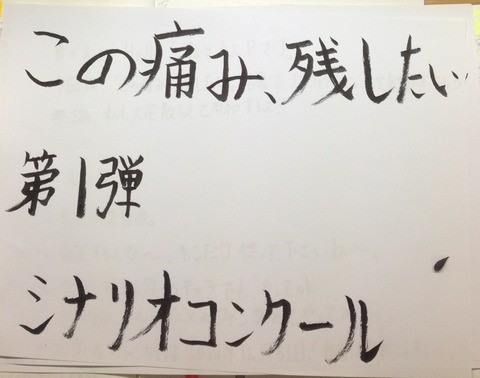 この痛み、残したい
第1弾
シナリオコンクール